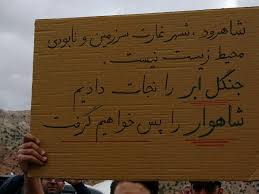 شاهرود ، شهر غارت سرزمین و نابودی
محیط زیست نیست .
جنگل ابر را نجات دادیم
شاهوار را پس خواهیم گرفت